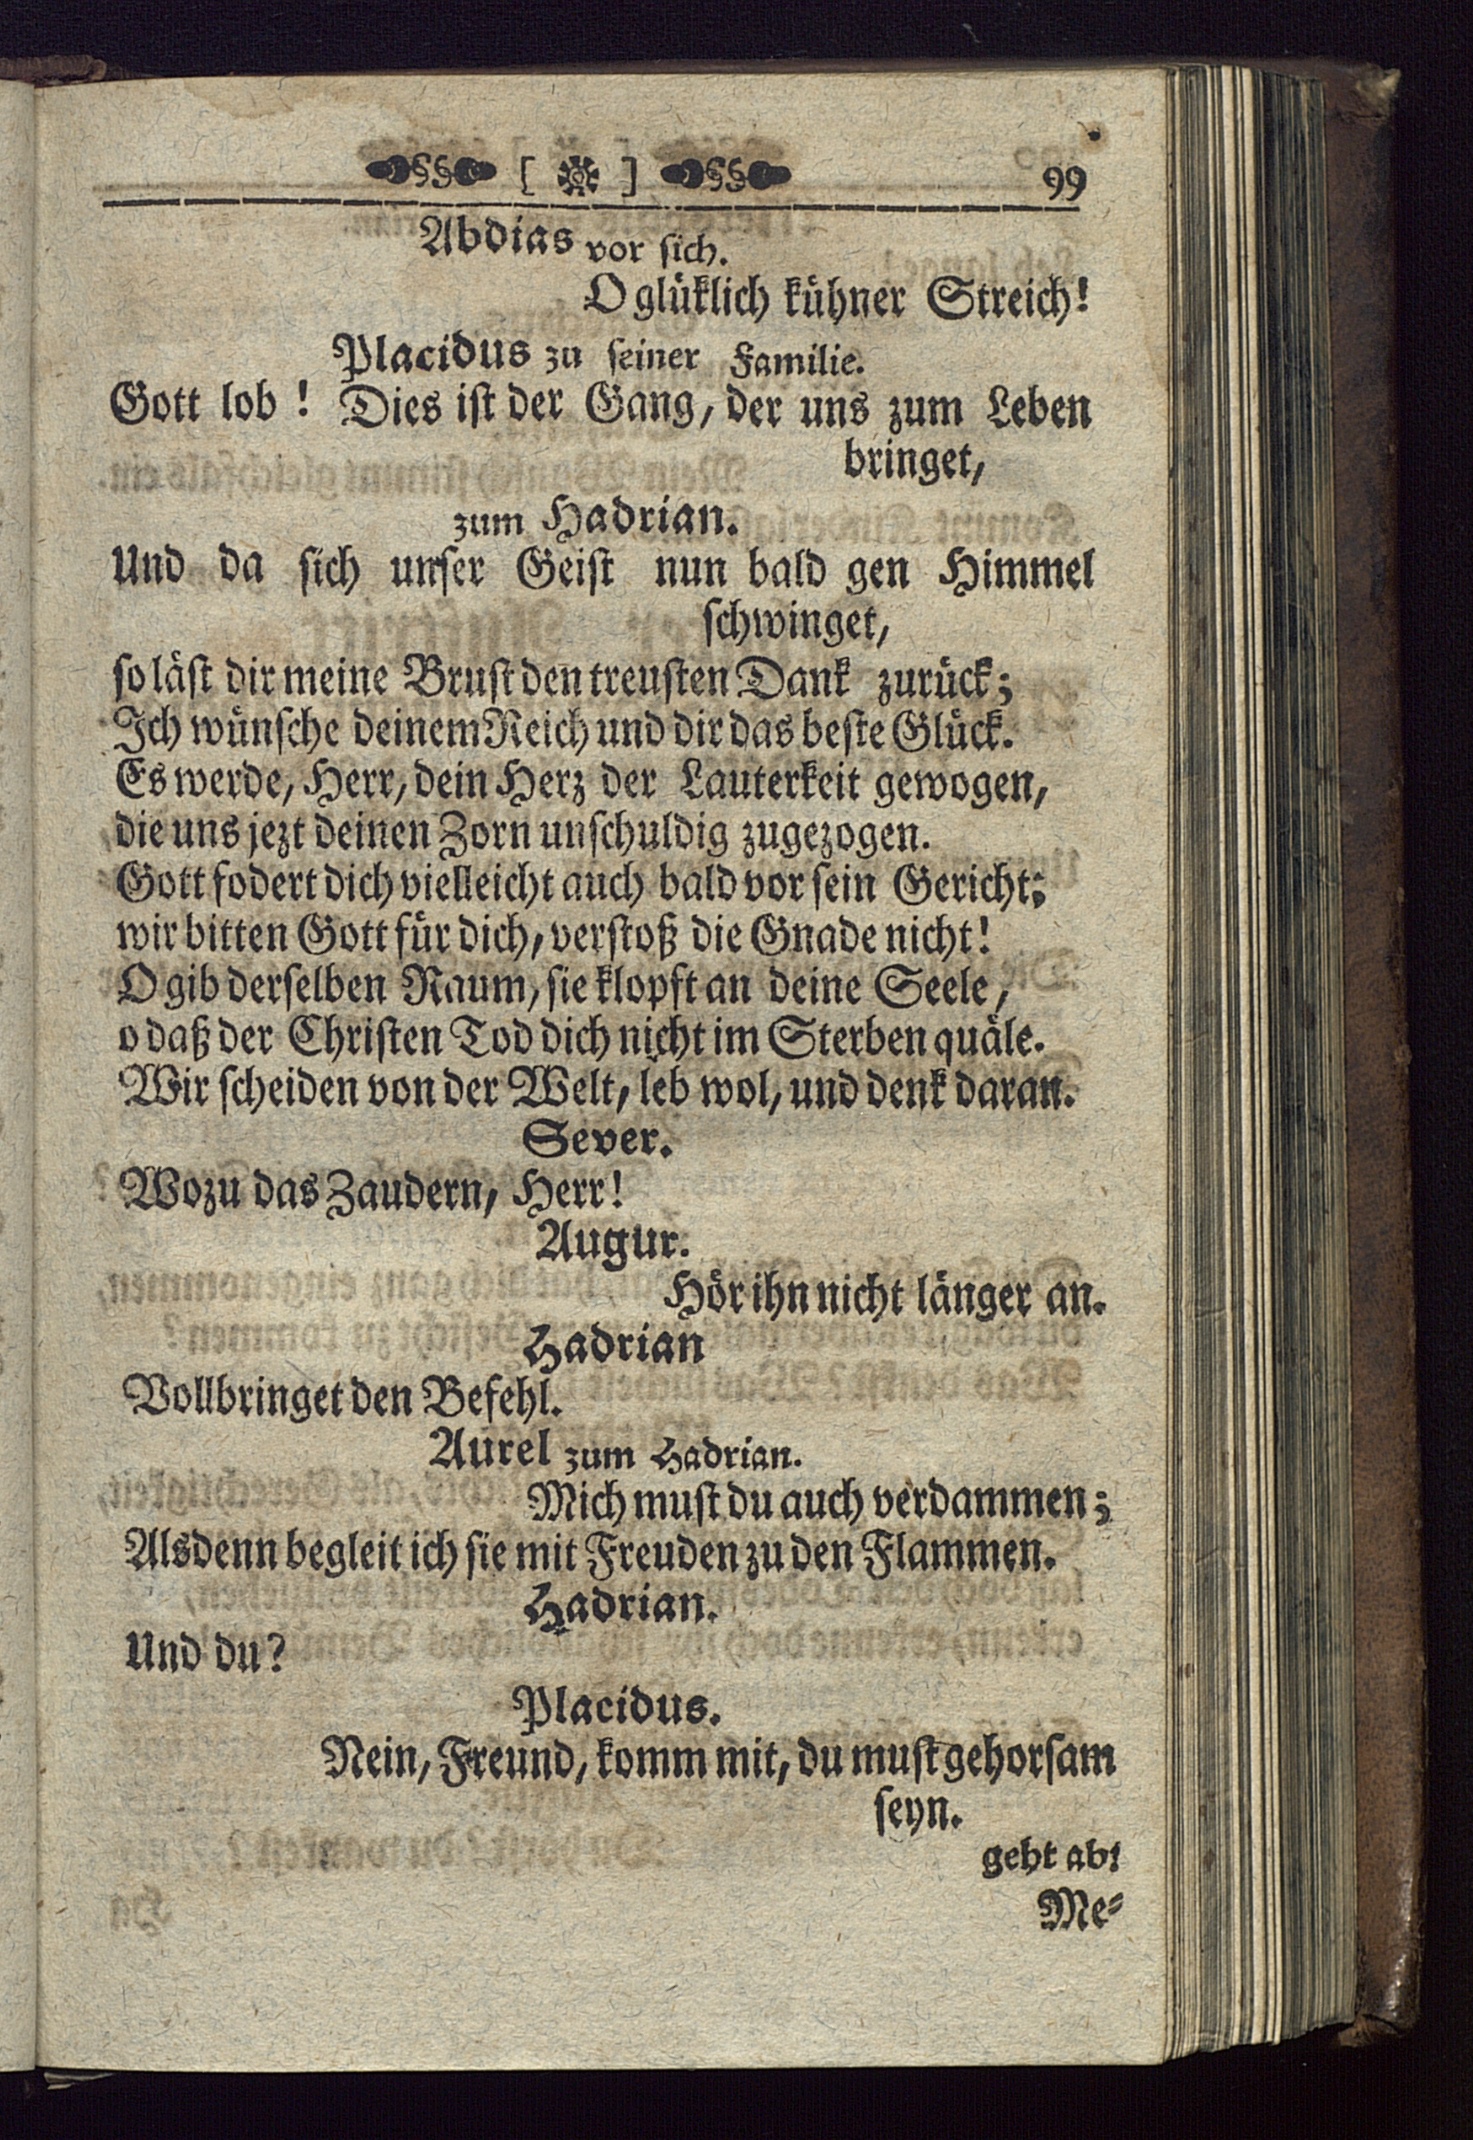 §§ [ ] §§ 99
Abdias vor sich.
O glüklich kühner Streich!
Placidus zu seiner Familie.
Gott lob! Dies ist der Gang, der uns zum Leben
bringet,
zum Hadrian.
Und da sich unser Geist nun bald gen Himmel
schwinget,
so läst dir meine Brust den treusten Dank zurück;
Ich wünsche deinem Reich und dir das beste Glück.
Es werde, Herr, dein Herz der Lauterkeit gewogen,
die uns jezt deinen Zorn unschuldig zugezogen.
Gott fodert dich vielleicht auch bald vor sein Gericht;
wir bitten Gott für dich, verstoß die Gnade nicht!
O gib derselben Raum, sie klopft an deine Seele,
o daß der Christen Tod dich nicht im Sterben quäle.
Wir scheiden von der Welt, leb wol, und denk daran.
Sever.
Wozu das Zaudern, Herr!
Augur.
Hör ihn nicht länger an.
Hadrian
Vollbringet den Befehl.
Aurel zum Hadrian.
Mich must du auch verdammen;
Alsdenn begleit ich sie mit Freuden zu den Flammen.
Hadrian.
Und du?
Placidus.
Nein, Freund, komm mit, du must gehorsam
seyn.
geht ab!
Me-